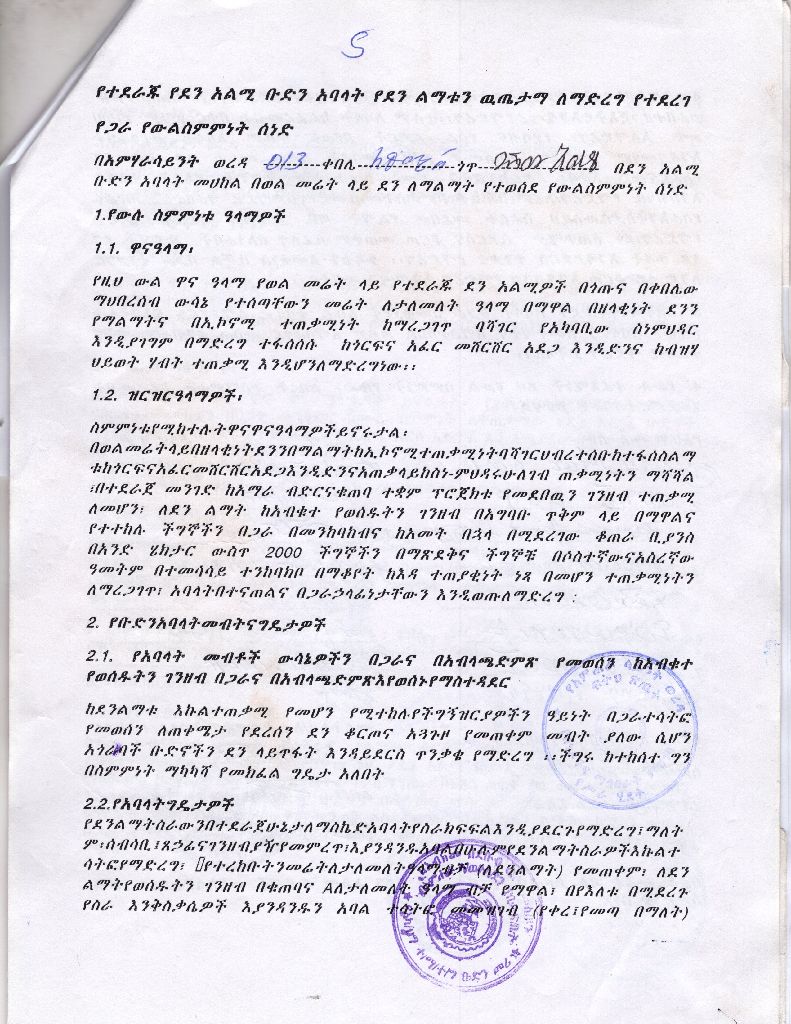 የተደራጁ የደን አልሚ ቡድን አባላት የደን ልማቱን ዉጤታማ ለማድረግ የተደረገ
የጋራ የውልስምምነት ሰነድ
በአምሃራሳይንት ወረዳ 013 ቀበሌ ጎጥ በደን አልሚ
ቡድን አባላት መሀከል በወል መሬት ላይ ደን ለማልማት የተወሰደ የውልስምምነት ሰነድ
1.የውሉ ስምምነቱ ዓላማዎች
1.1. ዋናዓላማ፡
የዚህ ውል ዋና ዓላማ የወል መሬት ላይ የተደራጁ ደን አልሚዎች በጎጡና በቀበሌው
ማህበረሰብ ውሳኔ የተሰጣቸውን መሬት ለታለመለት ዓላማ በማዋል በዘላቂነት ደንን
የማልማትና በኢኮኖሚ ተጠቃሚነት ከማረጋገጥ ባሻገር የአካባቢው ስነምህዳር
እንዲያገግም በማድረግ ተፋሰሱ ከጎርፍና አፈር መሸርሸር አደጋ እንዲድንና ከብዝሃ
ህይወት ሃብት ተጠቃሚ እንዲሆንለማድረግነው፡፡
1.2. ዝርዝርዓላማዎች፡
ስምምነቱየሚከተሉትዋናዋናዓላማዎችይኖሩታል፡
በወልመሬትላይበዘላቂነትደንንበማልማትከኢኮኖሚተጠቃሚነትባሻገርህብረተሰቡከተፋሰስልማ
ቱከጎርፍናአፈርመሸርሸርአደጋእንዲድንናአጠቃላይከስነ-ምህዳሩሁለገብ ጠቃሚነትን ማሻሻል
፣በተደራጀ መንገድ ከአማራ ብድርናቁጠባ ተቋም ፕሮጀክቱ የመደበዉን ገንዘብ ተጠቃሚ
ለመሆን፣ ለደን ልማት ከአብቁተ የወሰዱትን ገንዘብ በአግባቡ ጥቅም ላይ በማዋልና
የተተከሉ ችግኞችን በጋራ በመንከባከብና ከአመት በኋላ በሚደረገው ቆጠራ ቢያንስ
በአንድ ሄክታር ውስጥ 2000 ችግኞችን በማጽደቅና ችግኞቹ በሶስተኛውናአስረኛው
ዓመትም በተመሳሳይ ተንከባክቦ በማቆየት ከእዳ ተጠያቂነት ነጻ በመሆን ተጠቃሚነትን
ለማረጋገጥ፣ አባላትበተናጠልና በጋራኃላፊነታቸውን እንዲወጡለማድረግ ፡
2. የቡድንአባላትመብትናግዴታዎች
2.1. የአባላት መብቶች ውሳኔዎችን በጋራና በአብላጫድምጽ የመወሰን ከአብቁተ
የወሰዱትን ገንዘብ በጋራና በአብላጫድምጽእየወሰኑየማስተዳደር
ከደንልማቱ እኩልተጠቃሚ የመሆን የሚተከሉየችግኝዝርያዎችን ዓይነት በጋራተሳትፎ
የመወሰን ለጠቀሜታ የደረሰን ደን ቆርጦና አጓጉዞ የመጠቀም መብት ያለው ሲሆን
አጎራባች ቡድኖችን ደን ላይጥፋት እንዳይደርስ ጥንቃቄ የማድረግ ፡፡ችግሩ ከተከሰተ ግን
በስምምነት ማካካሻ የመክፈል ግዴታ አለበት
2.2.የአባላትግዴታዎች
የደንልማትስራውንበተደራጀሁኔታለማስኬድአባላትየስራክፍፍልእንዲያደርጉየማድረግ፣ማለት
ም፣ሰብሳቢ፣ጸኃፊናገንዘብያዥየመምረጥ፣እያንዳንዱአባልበሁሉምየደንልማትስራዎችእኩልተ
ሳትፎየማድረግ፣ የተረከቡትንመሬትለታለመለትዓላማብቻ (ለደንልማት) የመጠቀም፣ ለደን
ልማትየወሰዱትን ገንዘብ በቁጠባና Aለታለመለት ዓላማ ብቻ የማዋል፣ በየእለቱ በሚደረጉ
የስራ እንቅስቃሴዎች እያንዳንዱን አባል ተሳትፎ መመዝገብ (የቀረ፣የመጣ በማለት)